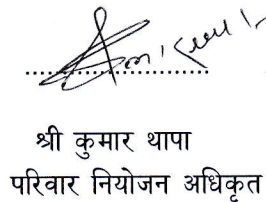 श्री कुमार थापा
परिवार नियोजन अधिकृत